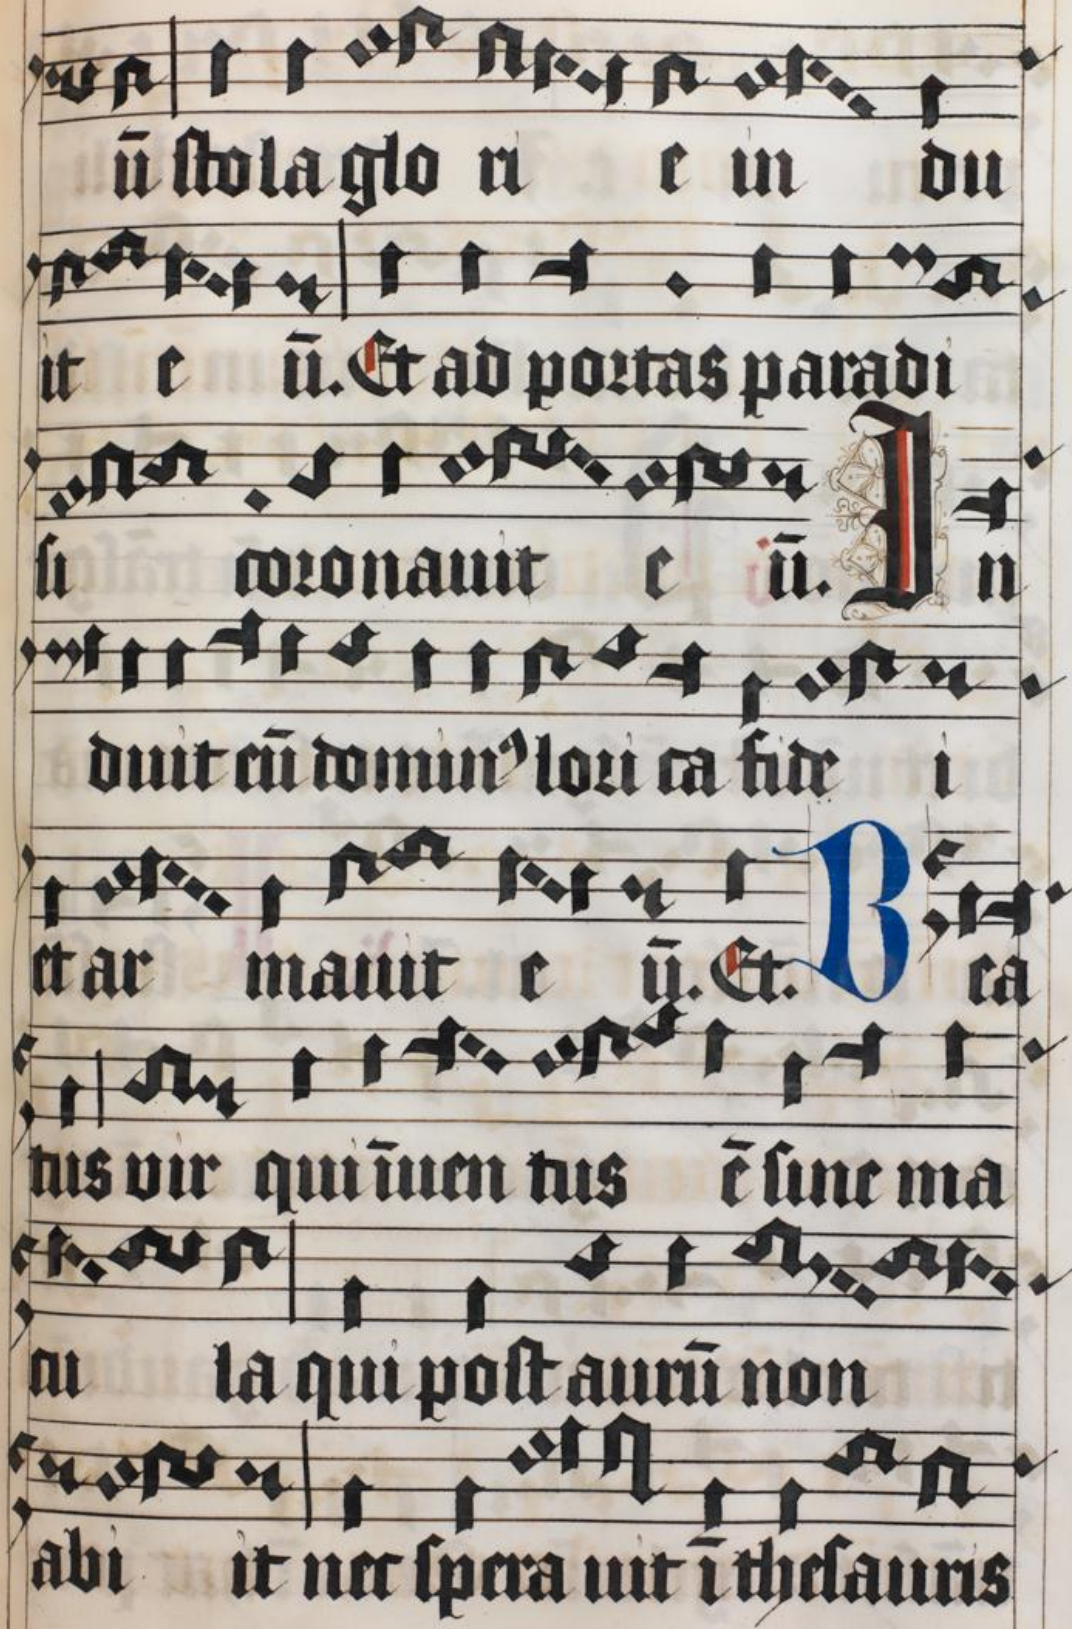 ū stola glo ri e in du
it e ū. Et ad portas paradi
si coronauit e ū. In
duit eū domin⁹ lori ca fide i
et ar mauit e ū. Et. Bea
tus vir qui īuen tus ē sine ma
cu la qui post aurū non
abi it nec spera uit ī thesauris